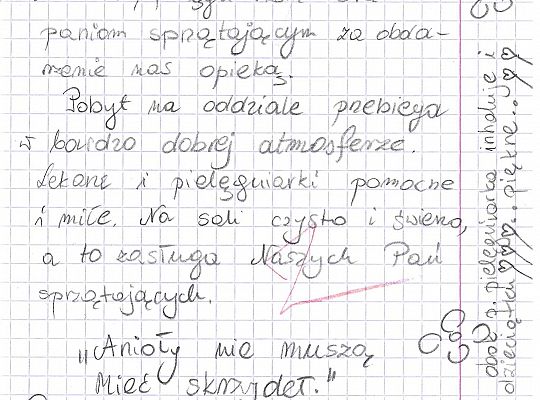 paniom sprzątającym za obda-
rzenie nas opieką.
Pobyt na oddziale przebiega
w bardzo dobrej atmosferze.
Lekarze i pielęgniarki pomocne
i miłe. Na sali czysto i świeżo,
a to zasługa Naszych Pań
sprzątających.
"Anioły nie muszą
Mieć skrzydeł."
p. pielęgniarka inhaluje i
dzieciątkich piękne...